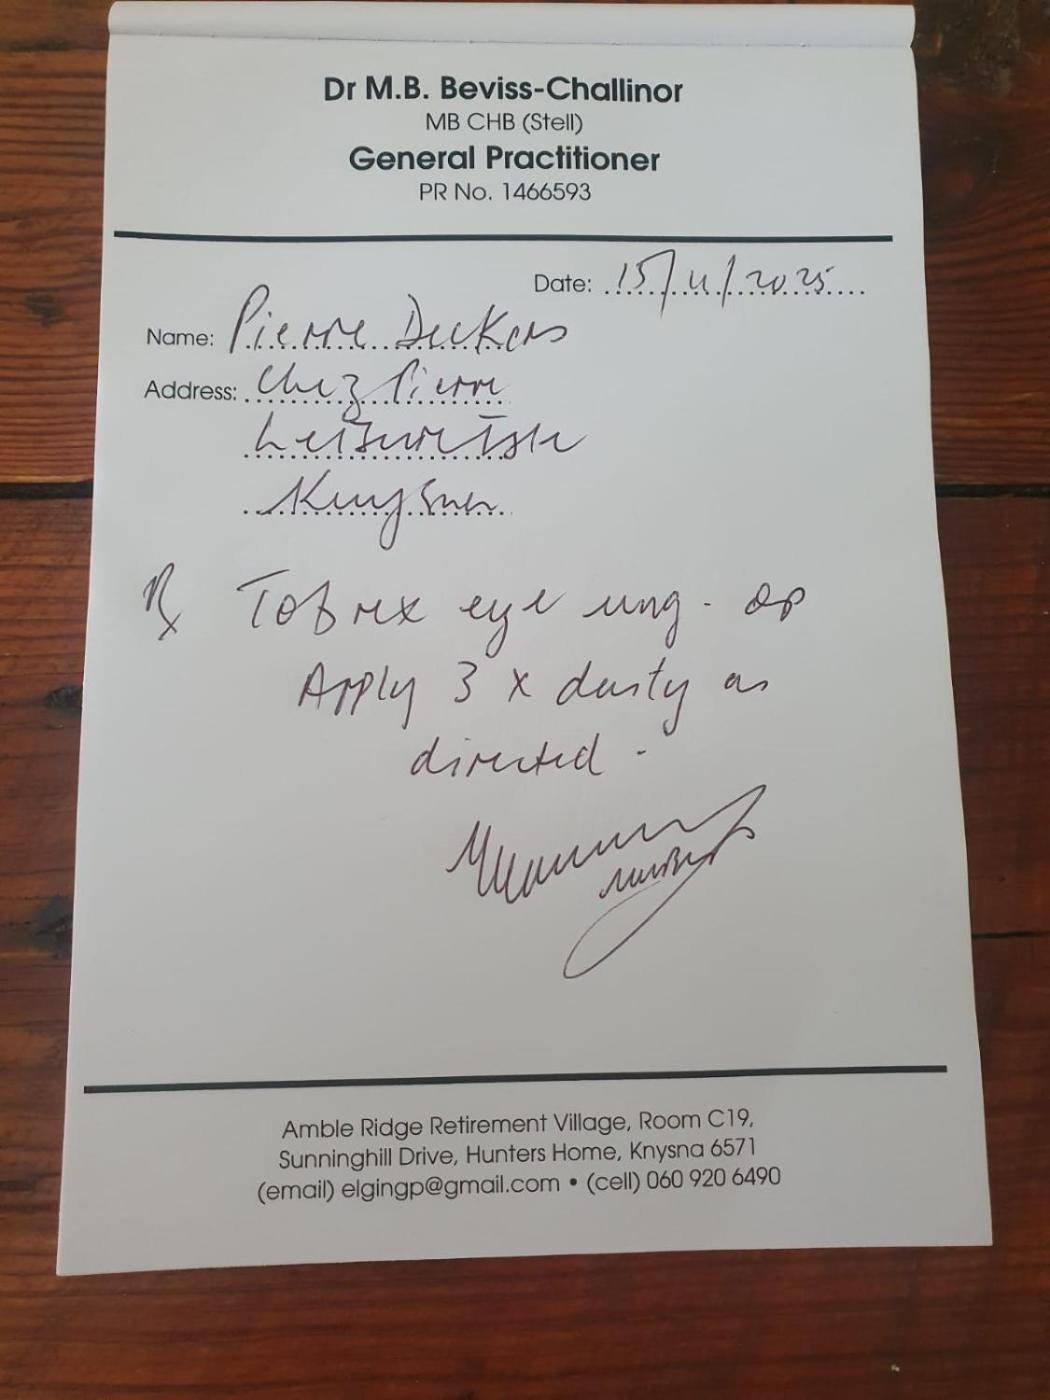 Dr M.B. Beviss-Challinor
MB CHB (Stell)
General Practitioner
PR No. 1466593
Date: 15/11/2025
Name: Pierre Deckers
Address: Chez Pierre
Leisure Isle
Knysna
Rx Tobrex eye ung. op
Apply 3 x daily as
directed.
Amble Ridge Retirement Village, Room C19,
Sunninghill Drive, Hunters Home, Knysna 6571
(email) elgingp@gmail.com • (cell) 060 920 6490